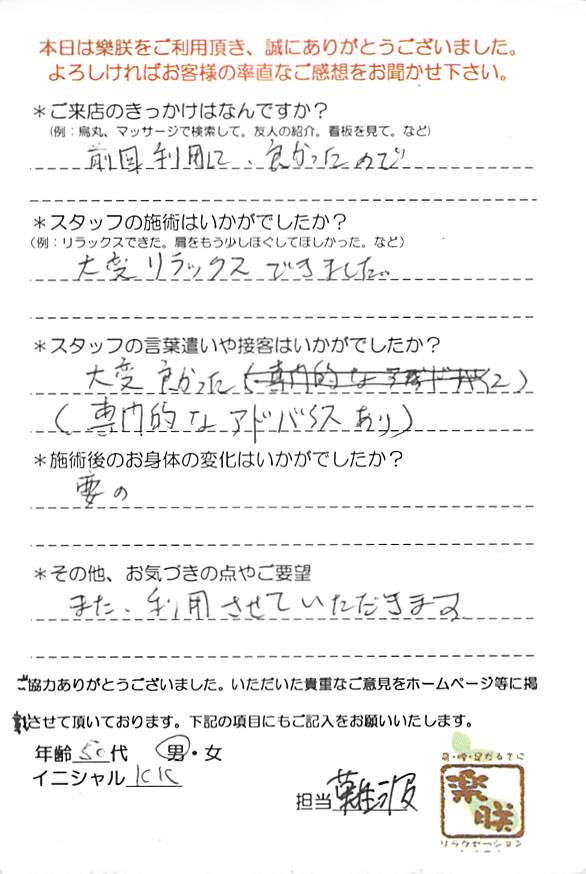 本日は樂朕をご利用頂き、誠にありがとうございました。
よろしければお客様の率直なご感想をお聞かせ下さい。
＊ご来店のきっかけはなんですか？
（例：烏丸、マッサージで検索して。友人の紹介。看板を見て。など）
前回利用して、良かったので
＊スタッフの施術はいかがでしたか？
（例：リラックスできた。肩をもう少しほぐしてほしかった。など）
大変リラックスできました。
＊スタッフの言葉遣いや接客はいかがでしたか？
大変良かった
（専門的なアドバイスあり）
＊施術後のお身体の変化はいかがでしたか？
の
＊その他、お気づきの点やご要望
また、利用させていただきます
ご協力ありがとうございました。いただいた貴重なご意見をホームページ等に掲
載させて頂いております。下記の項目にもご記入をお願いいたします。
年齢 50代 男・女
イニシャル KK
担当 難波
樂朕
リラクゼーション